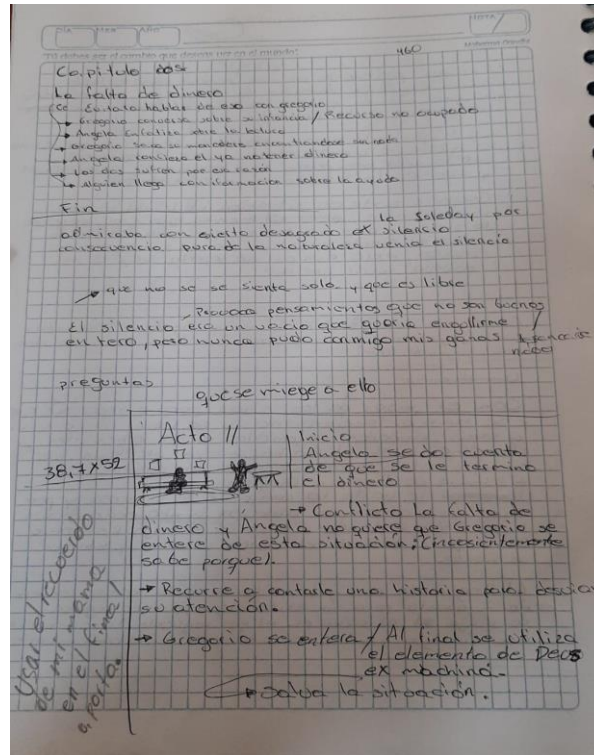 Día Mes Año
460
Capitulo dos
La falta de dinero
Evitara hablar de eso con gregorio
Gregorio conversa sobre su infancia / Recurso no ocupado
Angela
Gregorio
Angela confiesa el ya no tener dinero
Los dos sufren por
Alguien llega con información sobre la ayuda
Fin
la Soledad por
admiraba con cierto desagrado el silencio
consecuencia pura de la naturaleza venia el silencio
que no se se sienta solo y que es libre
Provoca pensamientos que no son buenos
El silencio era un vacio que queria engullirme
entero, pero nunca pudo conmigo mis ganas
preguntas
que se niege a ello
Acto II
38,7x52
Inicio
Angela se da cuenta
de que se le termino
el dinero
→ Conflicto La falta de
dinero y Ángela no quiere que Gregorio se
entere de esta situación;
sabe porque).
→ Recurre a contarle una historia para desviar
su atención.
→ Gregorio se entera / Al final se utiliza
el elemento de Deus
ex machina.
→ Salva la situación.
Usar el recuerdo
de mi mama
en el